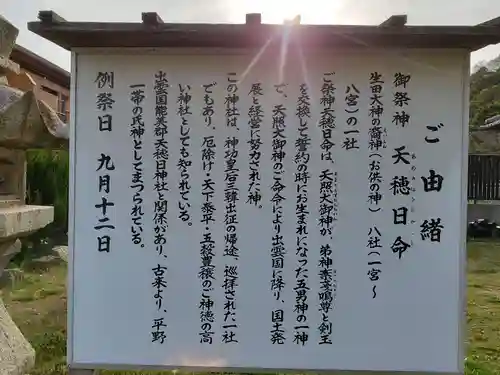 ご由緒
御祭神 天穂日命
あめのほひのみこと
生田大神の裔神(お供の神) 八社(一宮〜
八宮)の一社
ご祭神天穂日命は、天照大御神が、弟神素戔嗚尊と剣玉
を交換して誓約の時にお生まれになった五男神の一神
で、天照大御神のご命令により出雲国に降り、国土発
展と経営に努力された神。
この神社は、神功皇后三韓出征の帰途、巡拝された一社
でもあり、厄除け・天下泰平・五穀豊穣のご神徳の高
い神社としても知られている。
出雲国能美郡天穂日神社と関係があり、古来より、平野
一帯の氏神としてまつられている。
例祭日 九月十二日